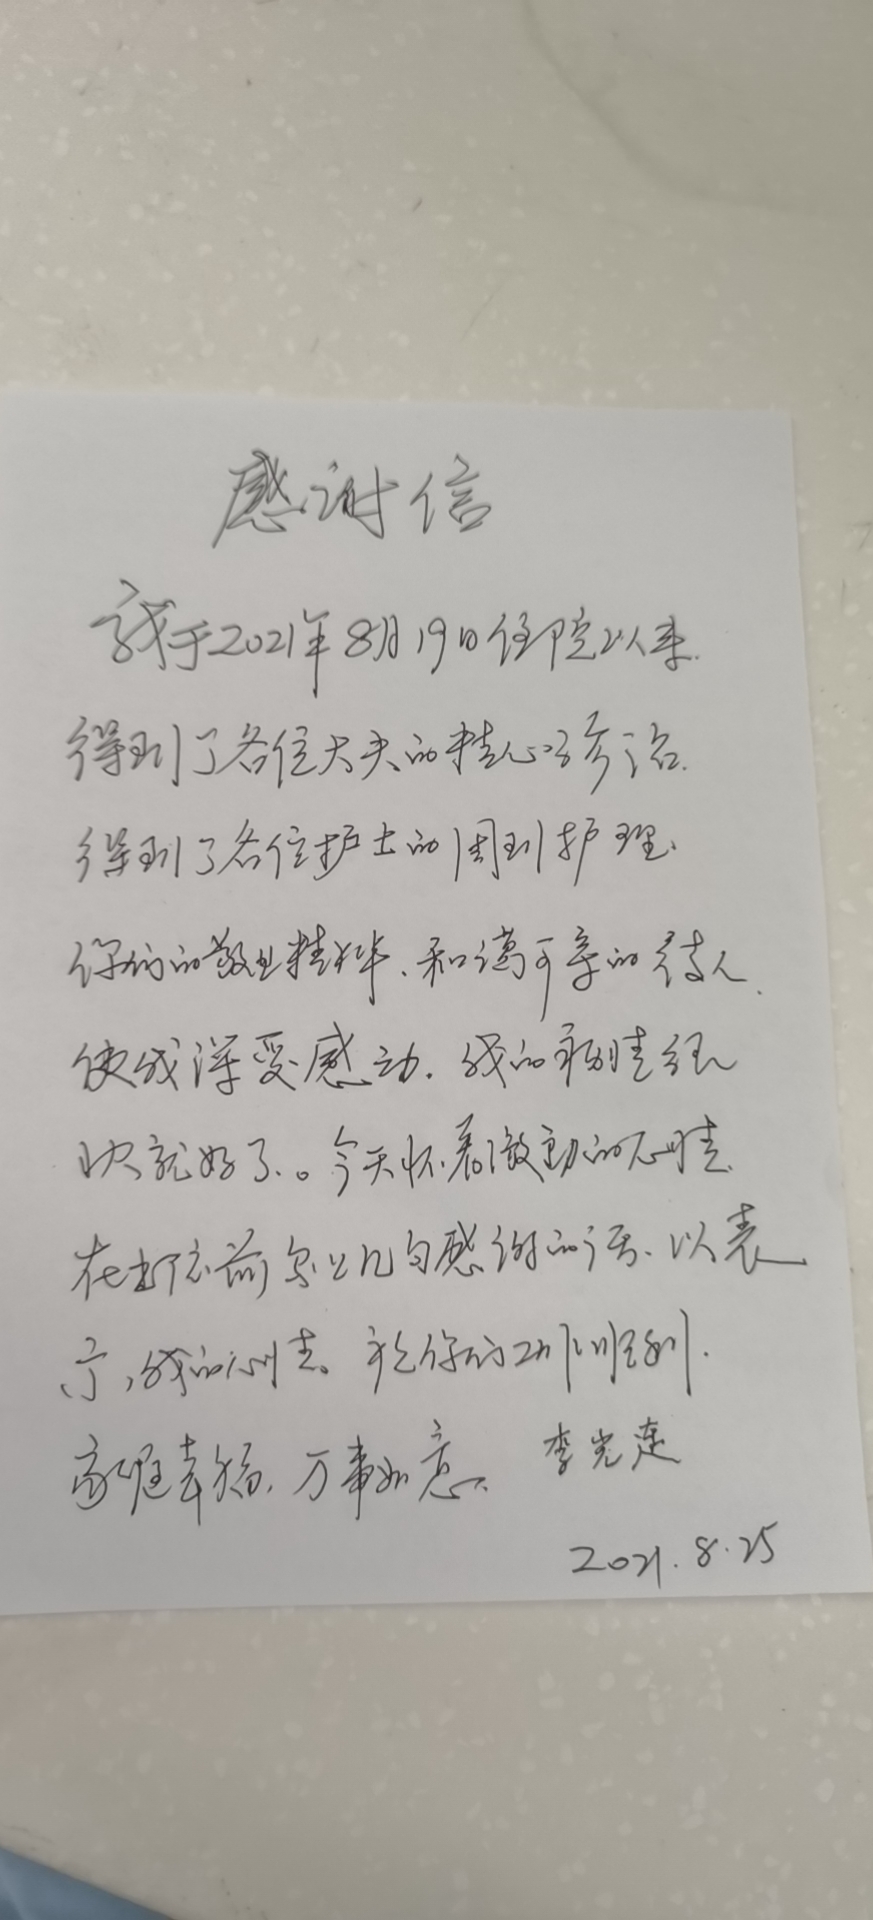 感谢信
我于2021年8月19日住院以来.
得到了各位大夫的精心诊治.
得到了各位护士的周到护理.
你们的敬业精神、和蔼可亲的待人.
使我深受感动.我的病情很
快就好了.。今天怀着激动的心情.
在出院前写上几句感谢的话、以表
示,我的心情。祝你们工作顺利.
家庭幸福.万事如意. 李光莲
2021.8.25